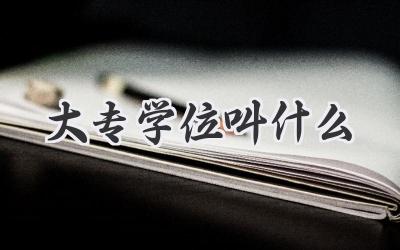 大专学位叫什么